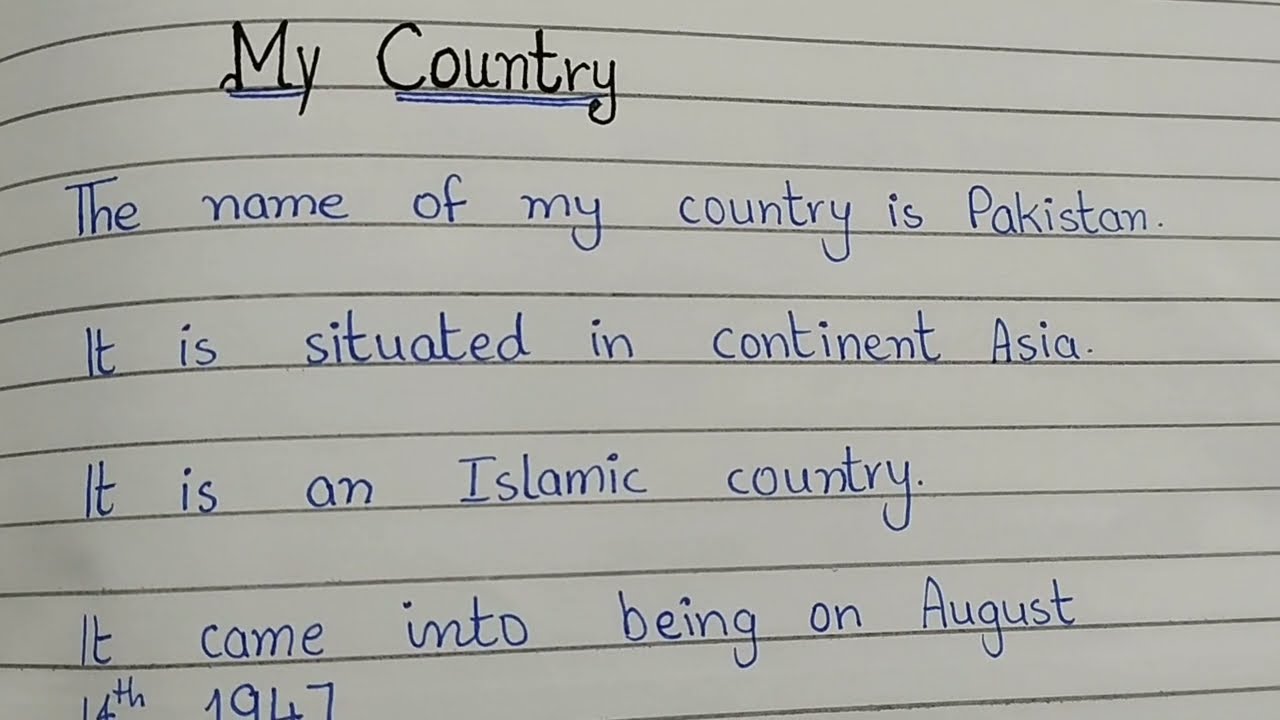 My Country
The name of my country is Pakistan.
It is situated in continent Asia.
It is an Islamic country.
It came into being on August
14th 1947